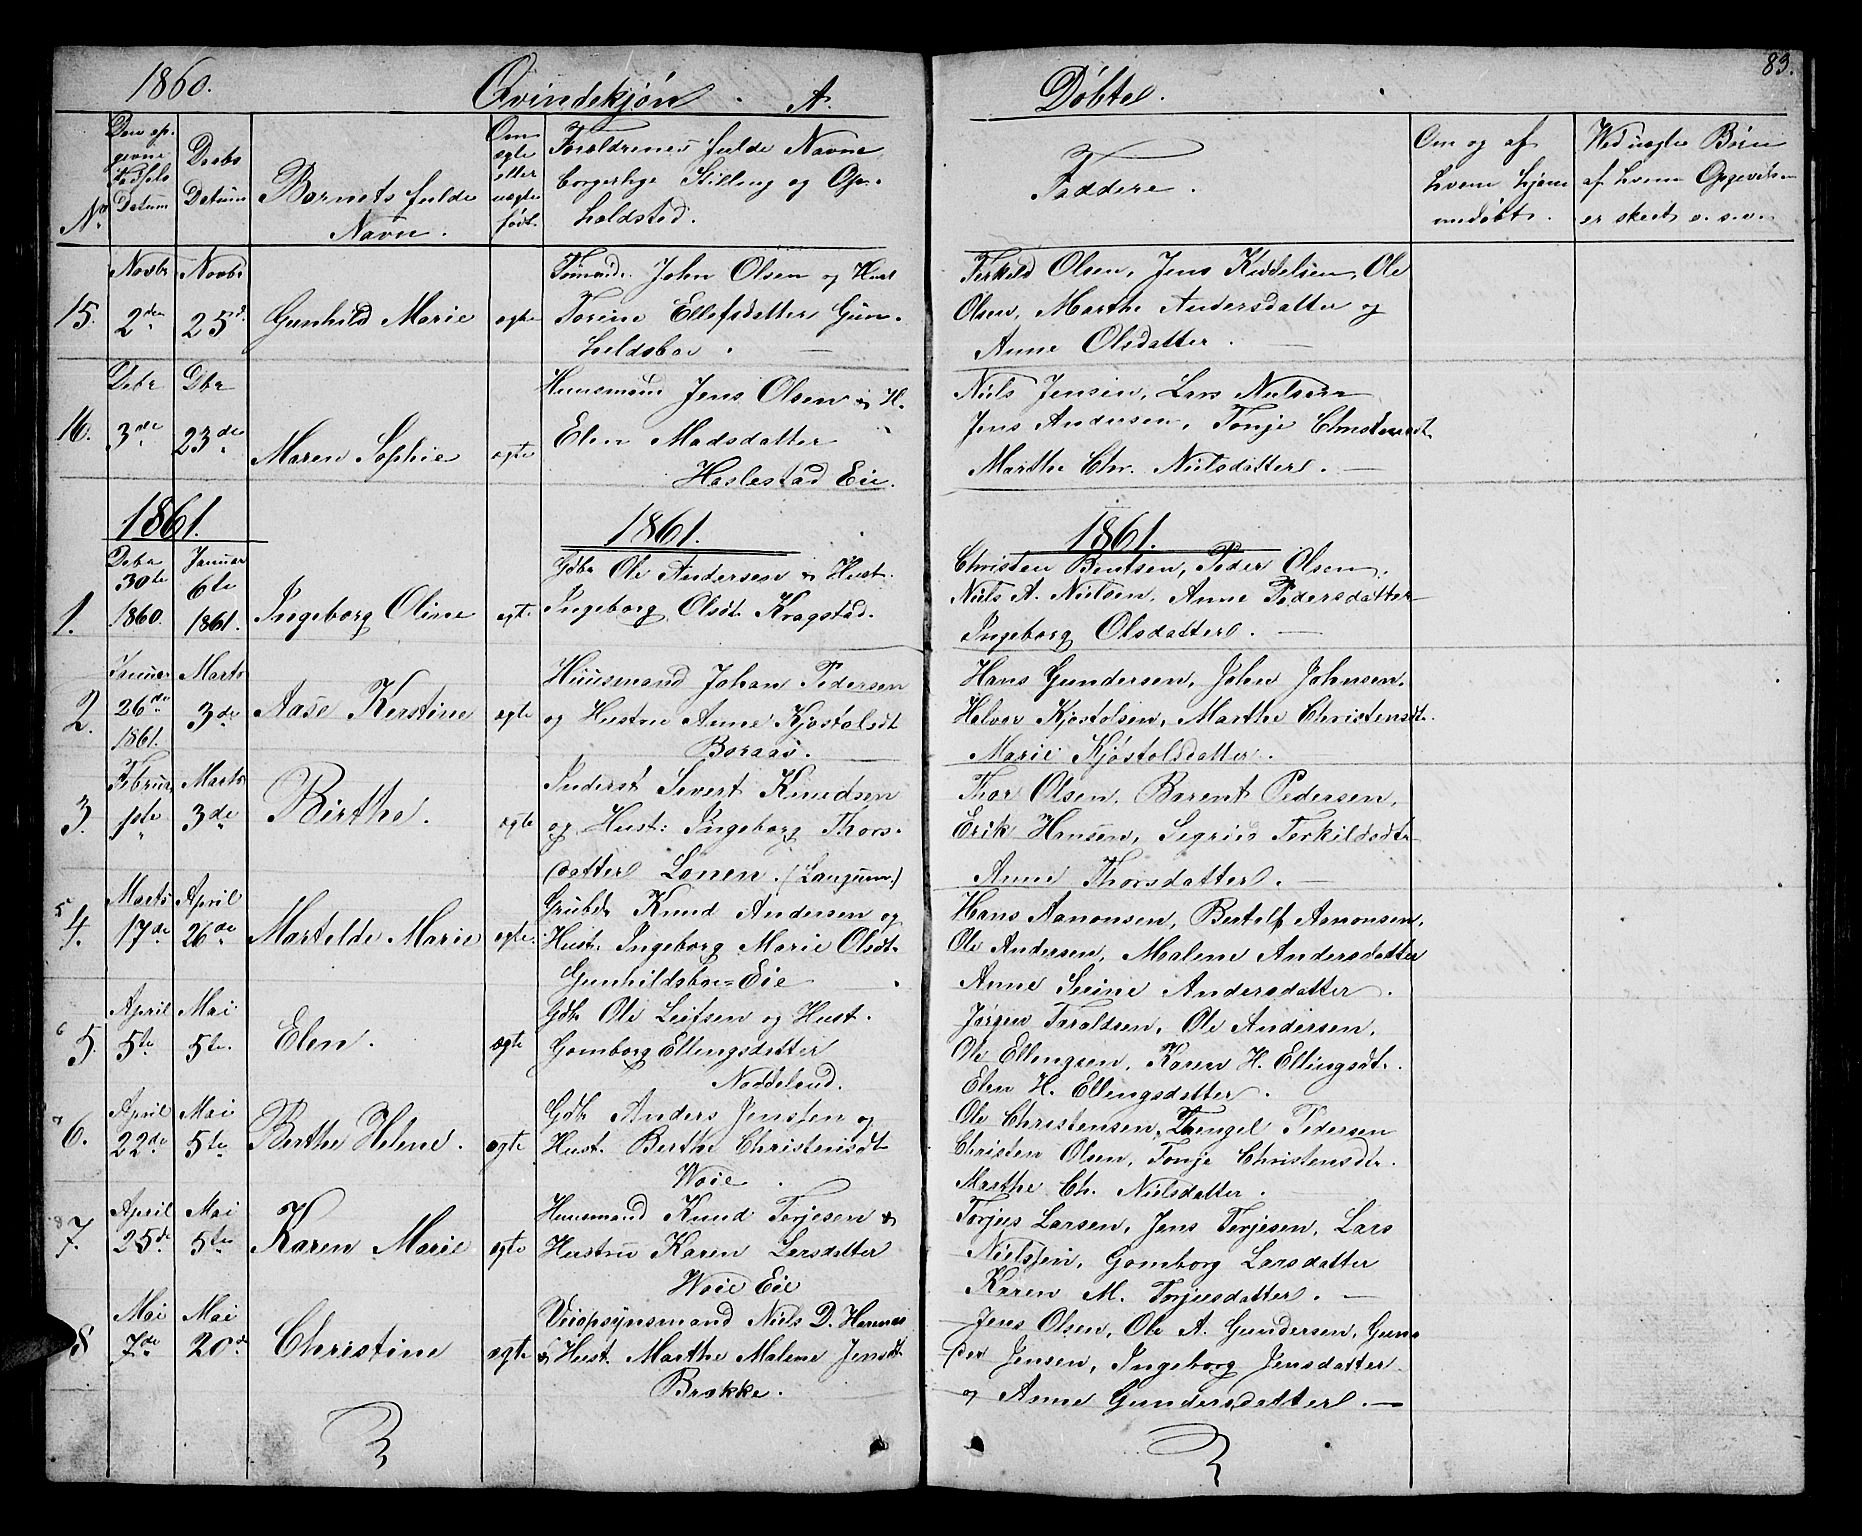 1860.
Qvindekjøn. A.
Døbte.
83.
No
Den op-
givne
Fødsels
Datum
Daabs
Datum
Barnets fulde
Navn.
Om
ægte
eller
uægte
født.
Forældrenes fulde Navne
borgerlige Stilling og Op-
holdsted.
Faddere.
Om og af
hvem hjem-
medøbt.
Ved uægte Børn
af hvem Opgivelsen
er skeet o.s.v.
15.
Novbr
2den
Novbr
25d.
Gunhild Marie
ægte
John Olsen og Hust
Torine Ellefsdatter Gun-
hildsboe.
Terkild Olsen, Jens Kittelsen, Ole
Olsen, Marthe Andersdatter og
Anne Olsdatter.
16.
Debr
3de
Dbr
23de
Maren Sophie
ægte
Huusmand Jens Olsen & H.
Elen Madsdatter
Haslestad Eie.
Niels Jensen, Lars Nielsen
Jens Andersen, Tonje Christensdt.
Marthe Chr. Nielsdatter.
1861.
1861.
1861.
1.
Debr
30te
1860.
Januar
6te
1861.
Ingeborg Oline
ægte
Gdbr Ole Andersen & Hust.
Ingeborg Olsdt. Kragstad.
Christen Bentsen, Peder Olsen,
Niels A. Nielsen, Anne Pedersdatter
Ingeborg Olsdatter.
2.
Januar
26de
1861.
Marts
3de
Aase Kerstine
ægte
Huusmand Johan Pedersen
og Hustru Anne Kjøstolsdt
Boraas.
Hans Gundersen, John Johnsen,
Halvor Kjøstolsen, Marthe Christensdt.
Marie Kjøstolsdatter.
3.
Februar
1ste
Marts
3de
Birthe.
ægte
Inderst Sivert Knudsen
og Hust: Ingeborg Thors-
datter Lonen. (Langum.)
Thor Olsen, Barent Pedersen,
Erik Hansen, Sigrid Terkildsdtr
Anne Thorsdatter.
5
4.
Marts
17de
April
26de
Martelde Marie
ægte.
Grubedr Knud Andersen og
Hust. Ingeborg Marie Olsdt.
Gunhildsboe-Eie
Hans Aanonsen, Bertolf Aanonsen,
Ole Andersen, Malene Andersdatter
Anne Serine Andersdatter.
6
5.
April
5te
Mai
5te.
Elen.
ægte
Gdb. Ole Leitsen og Hust.
Gomborg Ellingsdatter
Noddeland.
Jørgen Taraldsen, Ole Andersen,
Ole Ellingsen, Karen H. Ellingsdt.
Elen H. Ellingsdatter.
6.
April
22de
Mai
5te
Berthe Helene.
ægte
Gdb. Anders Jensten og
Hust. Berthe Christensdt
Woie.
Ole Christensen, Thengel Pedersen
Christen Olsen, Tonje Christensdtr.
Marthe Ch. Nielsdatter.
8
7.
April
25de
Mai
5te
Karen Marie
ægte
Huusmand Knud Torjesen &
Hustru Karen Larsdatter
Woie Eie
Torjus Larsen, Jens Terjesen, Lars
Nielsen, Gomborg Larsdatter
Karen M. Torjusdatter.
8
Mai
7de
Mai
20d
Christine
ægte
Veiopsynsmand Niels D. Hannaas
& Hust. Marthe Malene Jensdt
Brække.
Jens Olsen, Ole A. Gundersen, Gun-
der Jensen, Ingeborg Jensdatter
og Anne Gundersdatter.